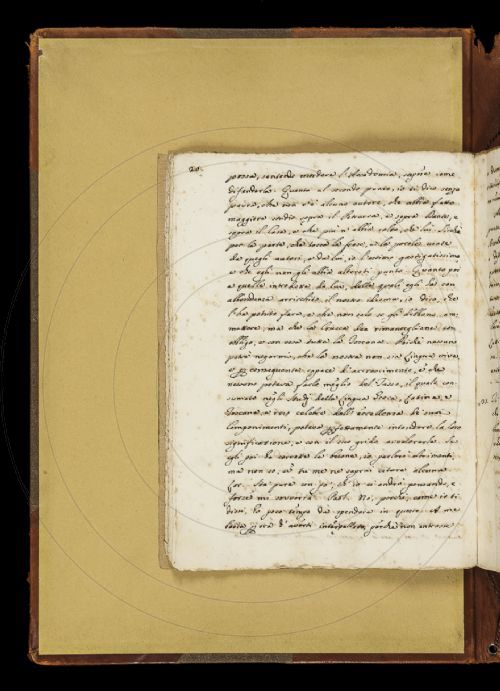 20.
possa, sentendo mordere l'Accademia, saprà come
difenderla. Quanto al secondo punto, io ti dico senza
che non v'è alcuno autore, che abbia fatto
maggiore studio sopra il Petrarca, e sopra Dante, e
sopra il Casa, e che più n'abbia colto, che lui. Sicché
per la parte, che tocca le frasi, e le parole usate
da quegli autori, e da lui, io l'estimo
e che egli non gli abbia alterati punto. Quanto poi
a quelle introdotte da lui, delle quali egli ha con
abbondanza arricchito il nostro idioma, io dico, che
l'ha potuto fare, e che non solo se gli debbano am-
mettere, ma che la Crusca dee rimanergliene con
obbligo, e con essa tutta la Toscana. Poiché nessuno
potrà negarmi, che la nostra non sia lingua viva,
e conseguente capace d'accrescimento, e che
nessuno poteva farlo meglio del Tasso, il quale con-
sumato negli studj della lingua Greca, Latina, e
Toscana, e reso celebre dall'eccellenza de' suoi
componimenti, poteva perfettamente intendere la loro
significazione, e con il suo grido avvalorarle. Se
egli poi da coteste la buone, io parlerò altrimenti,
ma non so, se tu me ne saprai citare alcuna.
Cor. Sta pure un po', ch'io ci andrò pensando, e
forse mi sovverrà. Past. No, perché, come io ti
dissi, ho poco tempo da spendere in questo. A me
basta per ora d'averti interpellato, perché non entrassi